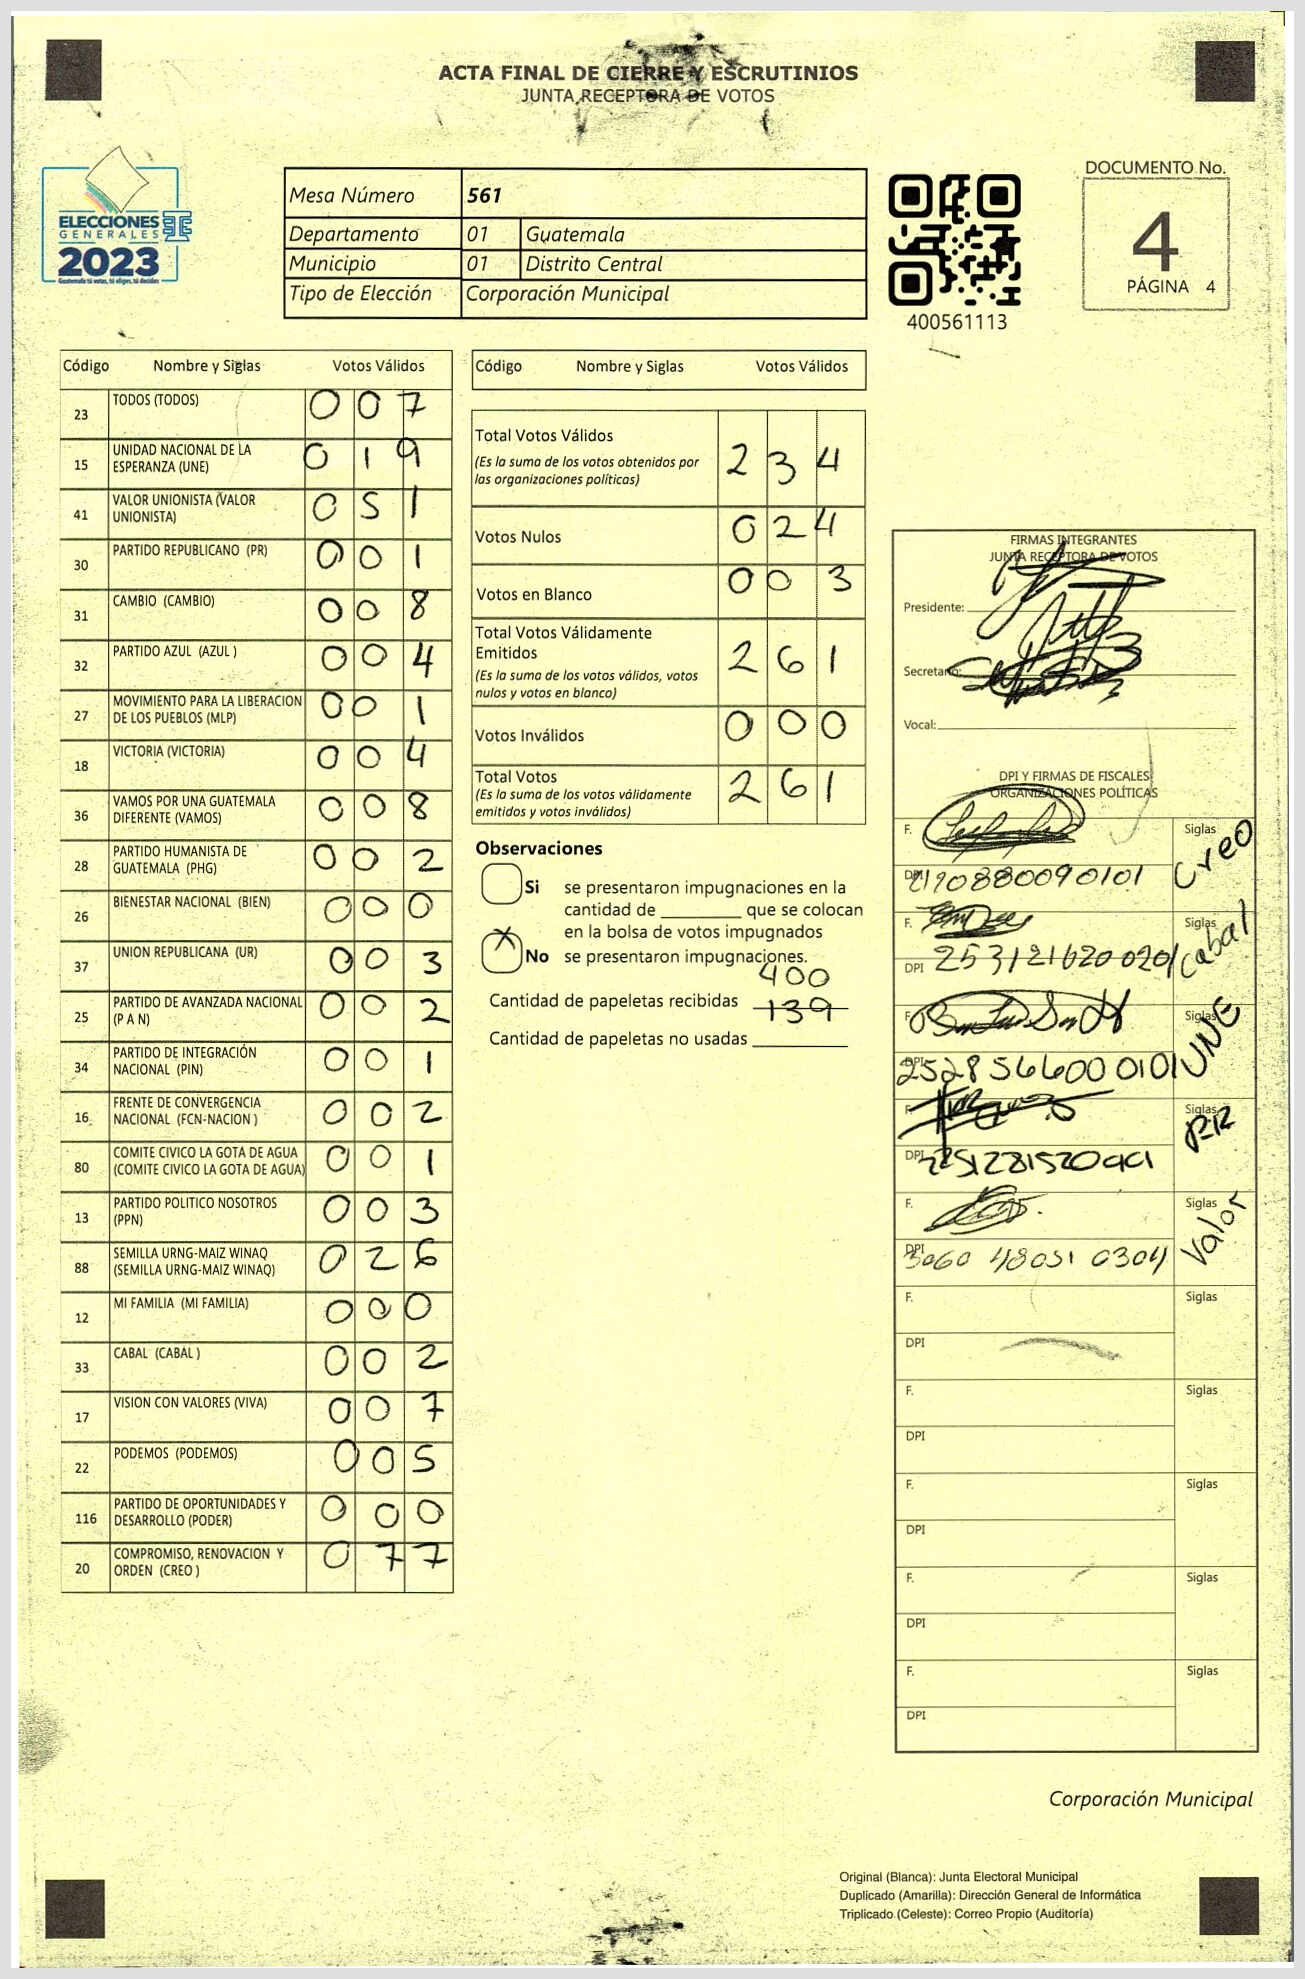 ACTA FINAL DE CIERRE Y ESCRUTINIOS
JUNTA RECEPTORA DE VOTOS
ELECCIONES
GENERALES
2023
Guatemala tú votas, tú eliges, tú decides
Mesa Número 561
Departamento 01 Guatemala
Municipio 01 Distrito Central
Tipo de Elección Corporación Municipal
400561113
DOCUMENTO No.
4
PÁGINA 4
Código Nombre y Siglas Votos Válidos
23 TODOS (TODOS) 0 0 7
15 UNIDAD NACIONAL DE LA ESPERANZA (UNE) 0 1 9
41 VALOR UNIONISTA (VALOR UNIONISTA) 0 5 1
30 PARTIDO REPUBLICANO (PR) 0 0 1
31 CAMBIO (CAMBIO) 0 0 8
32 PARTIDO AZUL (AZUL ) 0 0 4
27 MOVIMIENTO PARA LA LIBERACION DE LOS PUEBLOS (MLP) 0 0 1
18 VICTORIA (VICTORIA) 0 0 4
36 VAMOS POR UNA GUATEMALA DIFERENTE (VAMOS) 0 0 8
28 PARTIDO HUMANISTA DE GUATEMALA (PHG) 0 0 2
26 BIENESTAR NACIONAL (BIEN) 0 0 0
37 UNION REPUBLICANA (UR) 0 0 3
25 PARTIDO DE AVANZADA NACIONAL (P A N) 0 0 2
34 PARTIDO DE INTEGRACIÓN NACIONAL (PIN) 0 0 1
16 FRENTE DE CONVERGENCIA NACIONAL (FCN-NACION ) 0 0 2
80 COMITE CIVICO LA GOTA DE AGUA (COMITE CIVICO LA GOTA DE AGUA) 0 0 1
13 PARTIDO POLITICO NOSOTROS (PPN) 0 0 3
88 SEMILLA URNG-MAIZ WINAQ (SEMILLA URNG-MAIZ WINAQ) 0 2 6
12 MI FAMILIA (MI FAMILIA) 0 0 0
33 CABAL (CABAL ) 0 0 2
17 VISION CON VALORES (VIVA) 0 0 7
22 PODEMOS (PODEMOS) 0 0 5
116 PARTIDO DE OPORTUNIDADES Y DESARROLLO (PODER) 0 0 0
20 COMPROMISO, RENOVACION Y ORDEN (CREO ) 0 7 7
Código Nombre y Siglas Votos Válidos
Total Votos Válidos 2 3 4
(Es la suma de los votos obtenidos por
las organizaciones políticas)
Votos Nulos 0 2 4
Votos en Blanco 0 0 3
Total Votos Válidamente
Emitidos 2 6 1
(Es la suma de los votos válidos, votos
nulos y votos en blanco)
Votos Inválidos 0 0 0
Total Votos 2 6 1
(Es la suma de los votos válidamente
emitidos y votos inválidos)
Observaciones
Si se presentaron impugnaciones en la
cantidad de ________ que se colocan
en la bolsa de votos impugnados
X No se presentaron impugnaciones.
400
Cantidad de papeletas recibidas 139
Cantidad de papeletas no usadas
FIRMAS INTEGRANTES
JUNTA RECEPTORA DE VOTOS
Presidente:
Secretario:
Vocal:
DPI Y FIRMAS DE FISCALES
ORGANIZACIONES POLÍTICAS
F. Siglas Creo
DPI 2190880090101
F. Siglas Cabal
DPI 2531216200201
F. Siglas UNE
DPI 2528566000101
F. Siglas P.R
DPI
F. Siglas Valor
DPI 3060 48051 0304
F. Siglas
DPI
F. Siglas
DPI
F. Siglas
DPI
F. Siglas
DPI
F. Siglas
DPI
Corporación Municipal
Original (Blanca): Junta Electoral Municipal
Duplicado (Amarilla): Dirección General de Informática
Triplicado (Celeste): Correo Propio (Auditoría)